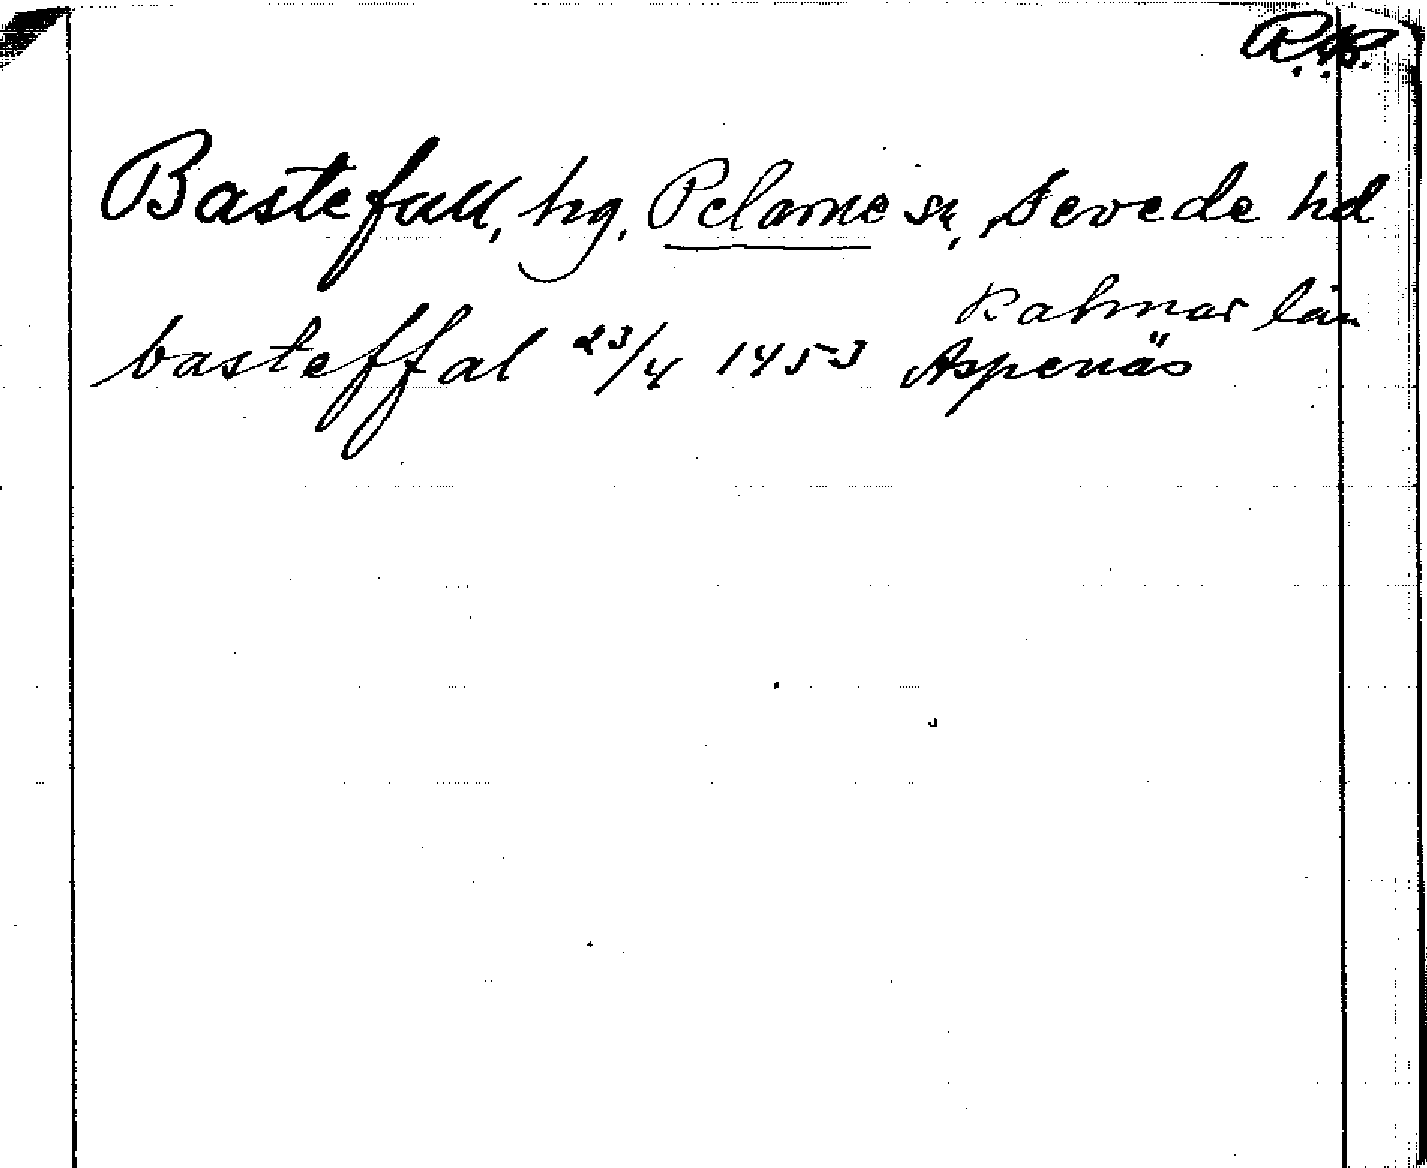 Bastefall, hg, Pelarne sn, Sevede hd
Kalmar län
basteffal 23/4 1453 Aspenäs